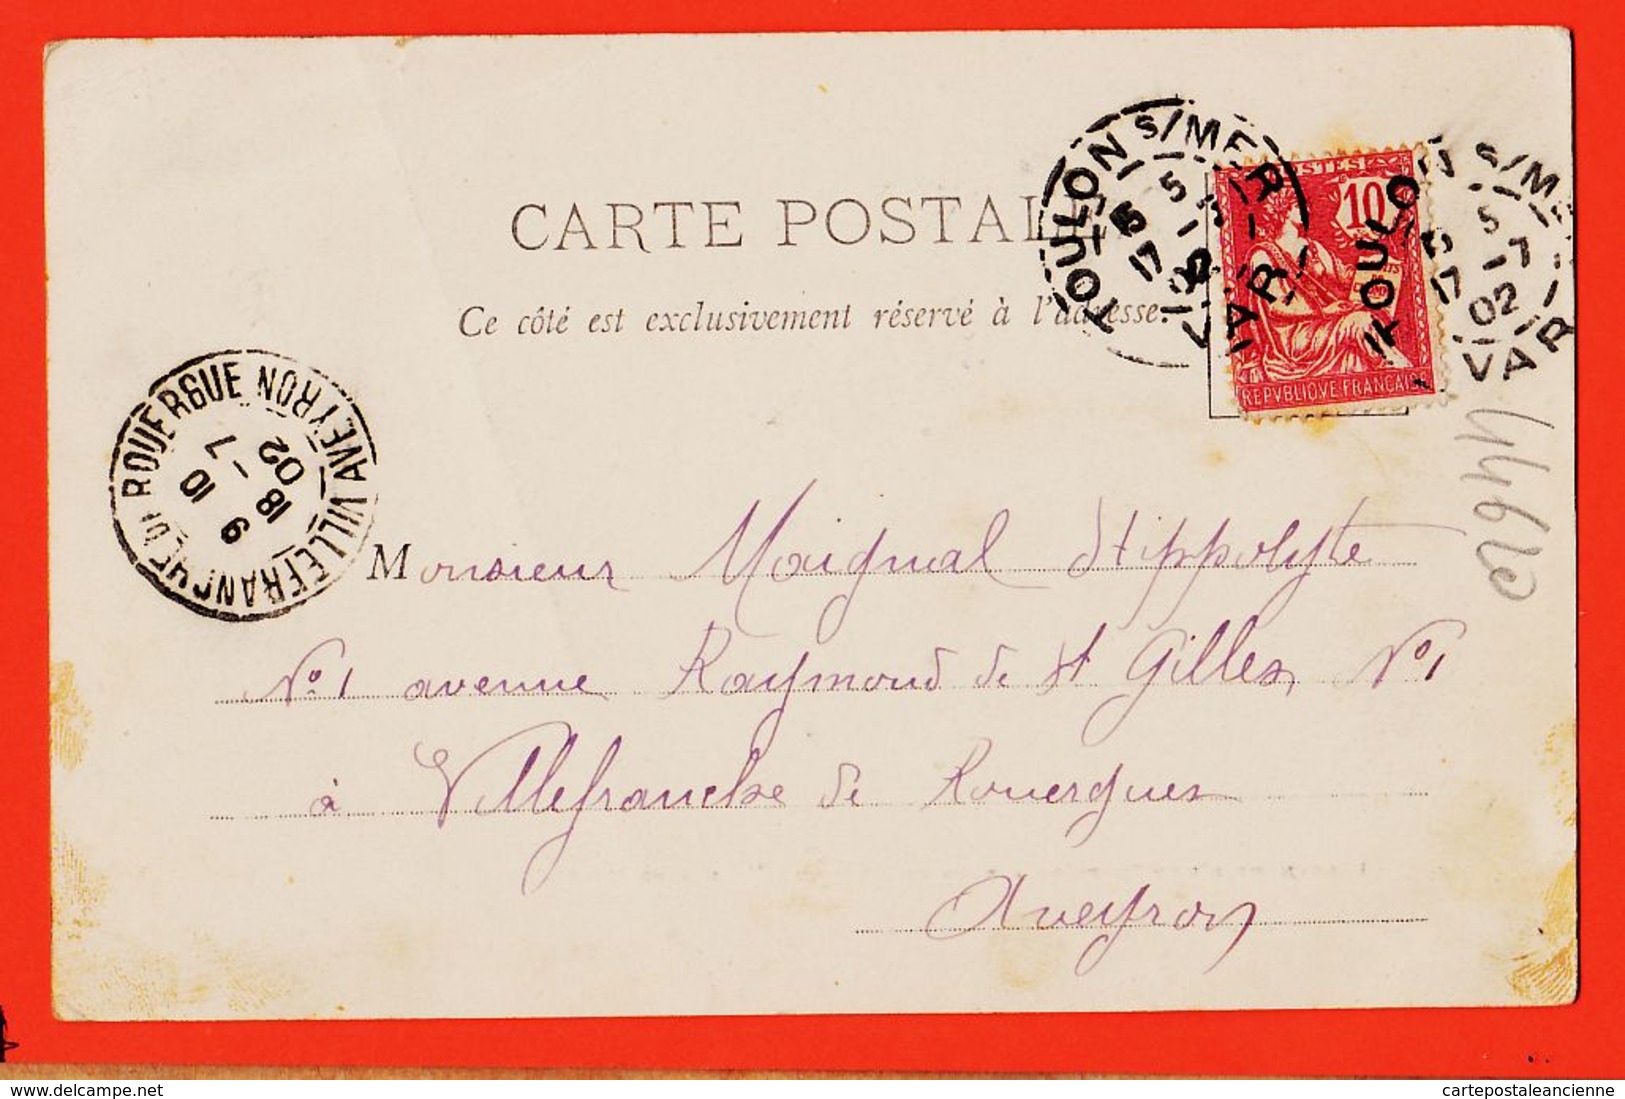 CARTE POSTALE
Ce côté est exclusivement réservé à l'adresse.
TOULON S/MER
5
17
VAR
POSTES
10
REPVBLIQVE FRANÇAISE
TOULON S/MER
5
17
02
VAR
VILLEFRANCHE DE ROUERGUE
AVEYRON
9 10
18 - 7
02
Monsieur Maignal Hippolyte
N° 1 avenue Raymond de St Gilles, N° 1
à Villefranche de Rouergues
Aveyron
delcampe.net
cartepostaleancienne